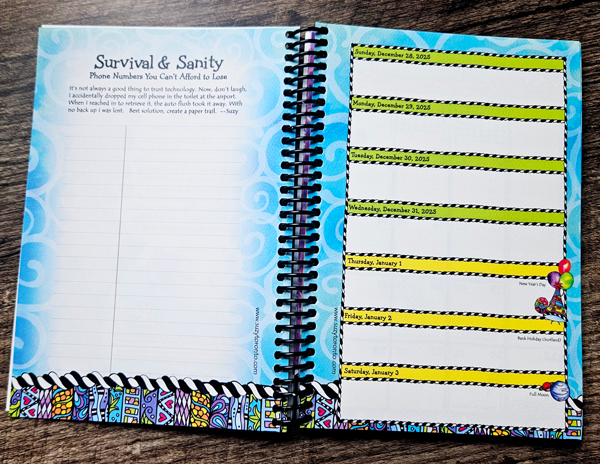 Survival & Sanity
Phone Numbers You Can't Afford to Lose
It's not always a good thing to trust technology. Now, don't laugh,
I accidentally dropped my cell phone in the toilet at the airport.
When I reached in to retrieve it, the auto flush took it away. With
no back up I was lost. Best solution, create a paper trail. --Suzy
www.suzytoronto.com
Sunday, December 28, 2025
Monday, December 29, 2025
Tuesday, December 30, 2025
Wednesday, December 31, 2025
Thursday, January 1
New Year's Day
Friday, January 2
Bank Holiday (Scotland)
Saturday, January 3
Full Moon
www.suzytoronto.com